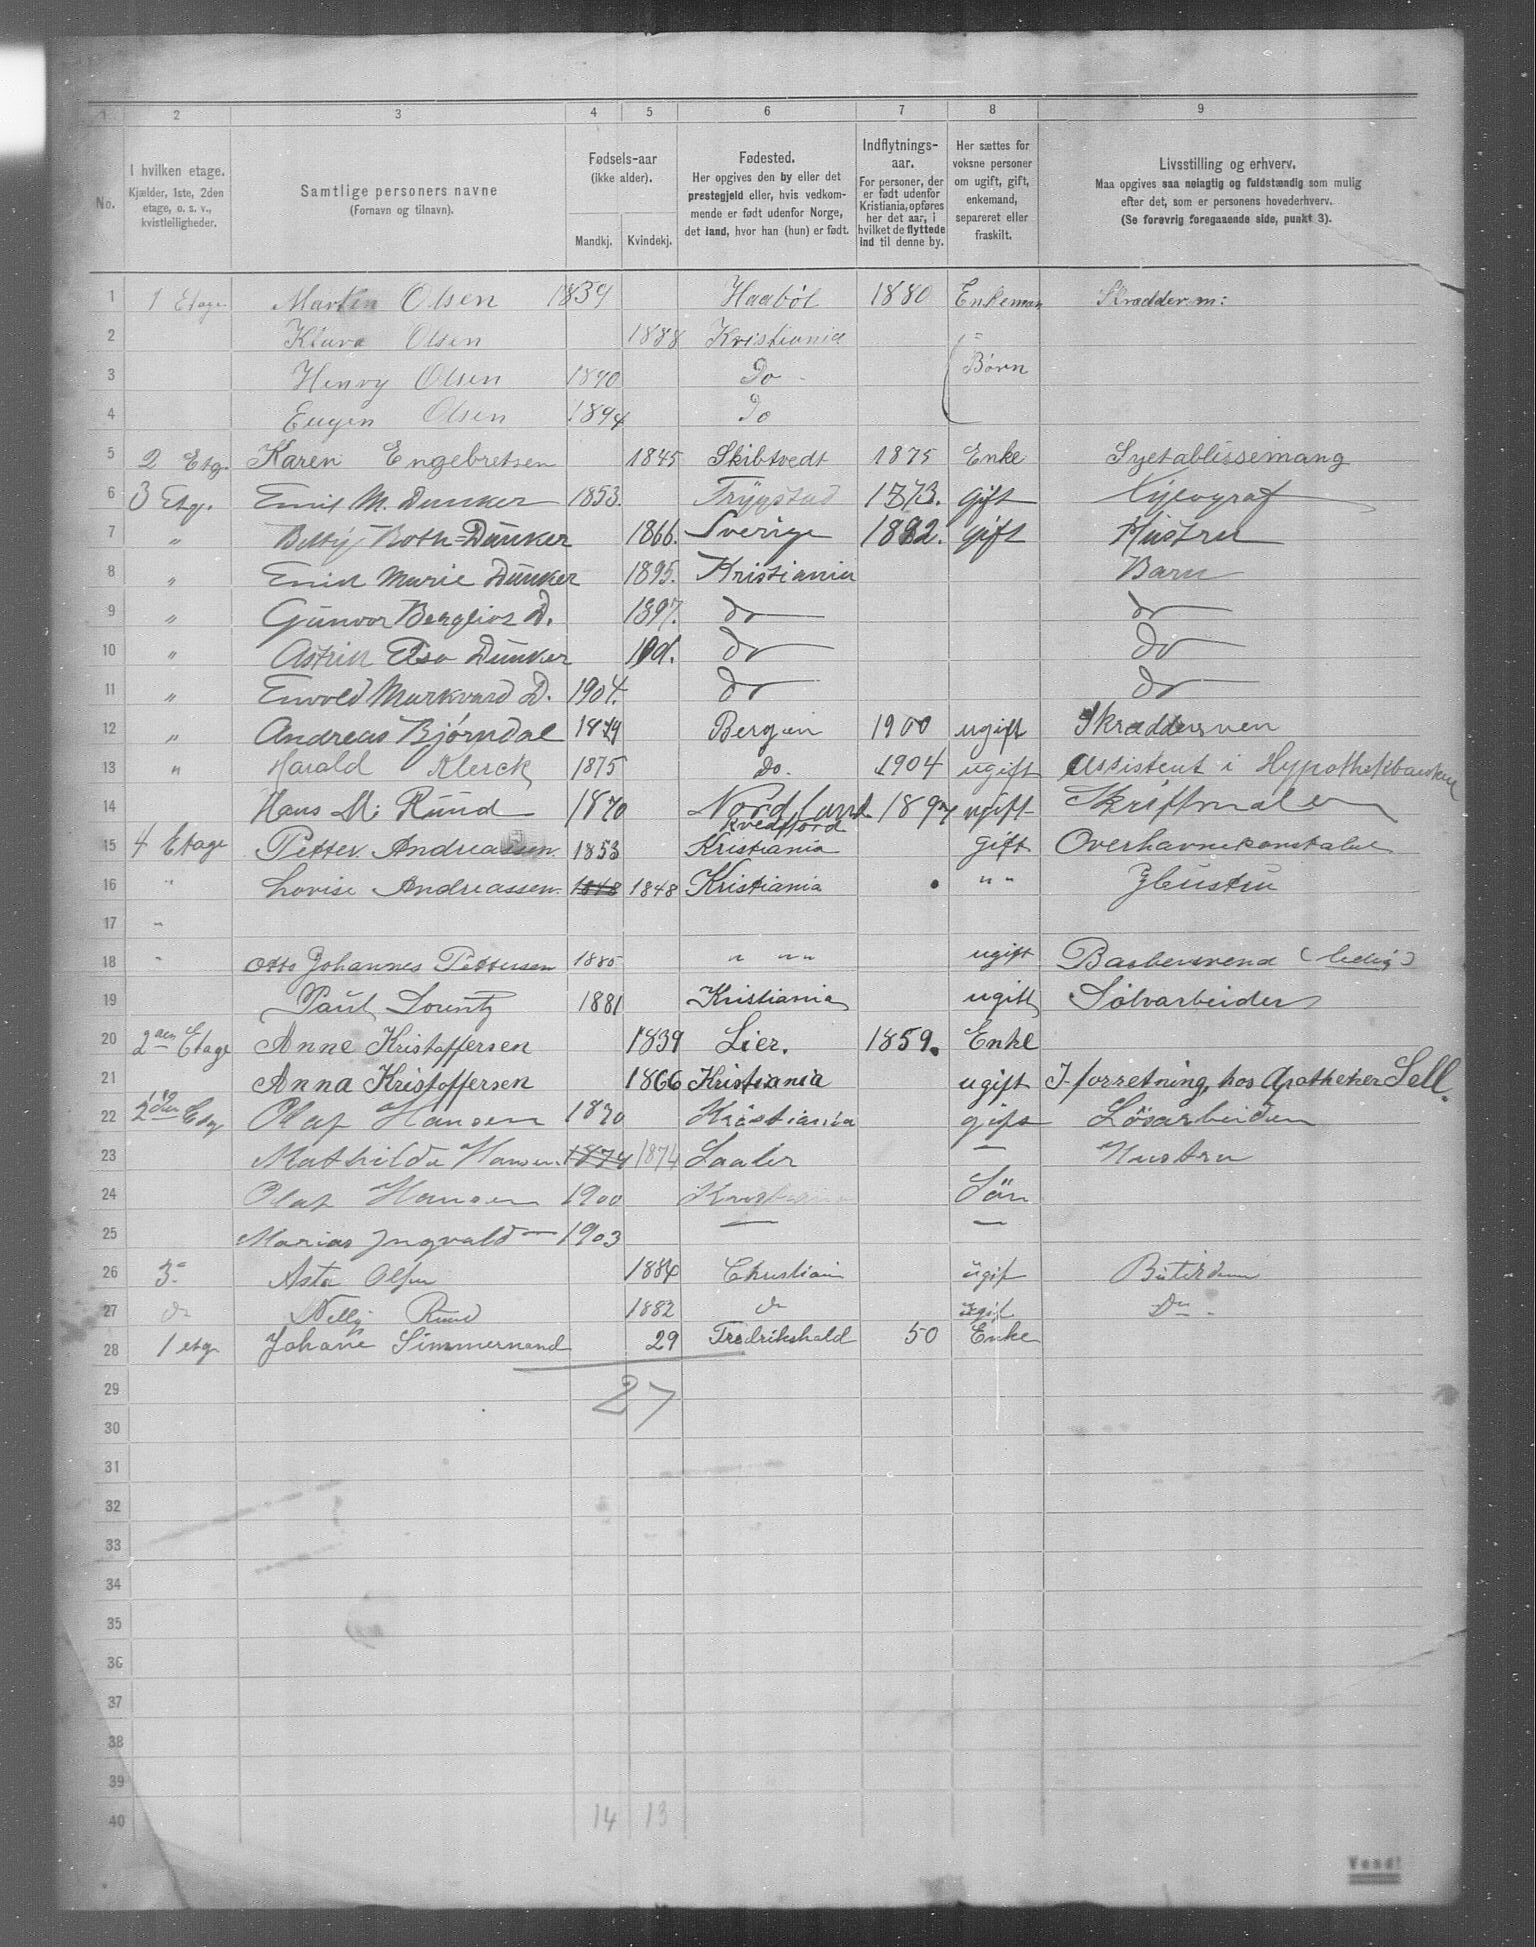 1 2 3 4 5 6 7 8 9
No.
I hvilken etage.
Kjælder, 1ste, 2den
etage, o. s. v.,
kvistleiligheder.
Samtlige personers navne
(Fornavn og tilnavn).
Fødsels-aar
(ikke alder).
Mandkj. Kvindekj.
Fødested.
Her opgives den by eller det
prestegjeld eller, hvis vedkom-
mende er født udenfor Norge,
det land, hvor han (hun) er født.
Indflytnings-
aar.
For personer, der
er født udenfor
Kristiania, opføres
her det aar, i
hvilket de flyttede
ind til denne by.
Her sættes for
voksne personer
om ugift, gift,
enkemand,
separeret eller
fraskilt.
Livsstilling og erhverv.
Maa opgives saa nøiagtig og fuldstændig som mulig
efter det, som er personens hovederhverv.
(Se forøvrig foregaaende side, punkt 3).
1 1 Etage Martin Olsen 1839 Haabøl 1880 Enkeman Skrædderm:
2 Klara Olsen 1888 Kristiania
3 Henry Olsen 1890 Do Børn
4 Eugen Olsen 1894 Do
5 2 Etg. Karen Engebretsen 1845 Skibtvedt 1875 Enke Syetablissemang
6 3 Etg. Emil M. Dunker 1853. Trygstad 1873. gift Xylograf
7 " Betty Roth=Dunker 1866. Sverige 1892. gift Hustru
8 " Marie Dunker 1895. Kristiania Barn
9 " Gunvor Bergliot D. 1897. do do
10 " Astrid Elsa Dunker do do
11 " Markvard D. 1904. do do
12 " Andreas Bjørndal 1879 Bergen 1900 ugift Skræddersven
13 " Harald Klerck 1875 Do. 1904 ugift Assistent i Hypothekbanken
14 Hans M: Rund 1870 Nordland 1897 ugift Skriftmaler
Kvedfjord
15 4 Etage Petter Andreassen 1853 Kristiania gift Overhavnekonstabel
16 " Lovise Andreassen 1848 1848 Kristiania " " Hustru
17 "
18 " Otto Johannes Pettersen 1885 " " " ugift Barbersvend (ledig)
19 Paul Lorentz 1881 Kristiania ugift Sølvarbeider
20 2den Etage Anne Kristoffersen 1839 Lier. 1859. Enke
21 Anna Kristoffersen 1866 Kristiania ugift I forretning hos Apotheker Sell.
22 2den Etag Olaf Hansen 1870 Kristiania gift Løsarbeider
23 Mathilda Hansen 1874 1874 Laaler — Hustru
24 Olaf Hansen 1900 Kristiania Sön
25 Marius Ingvald — 1903 — —
26 3 Asta Olsen 1884 Christiani ugift
27 do Nelly Rund 1882 do ugift Do
28 1 etg Johane Simmernand 29 Fredrikshald 50 Enke
29 27
30
31
32
33
34
35
36
37
38
39
40 14 13
Vend!